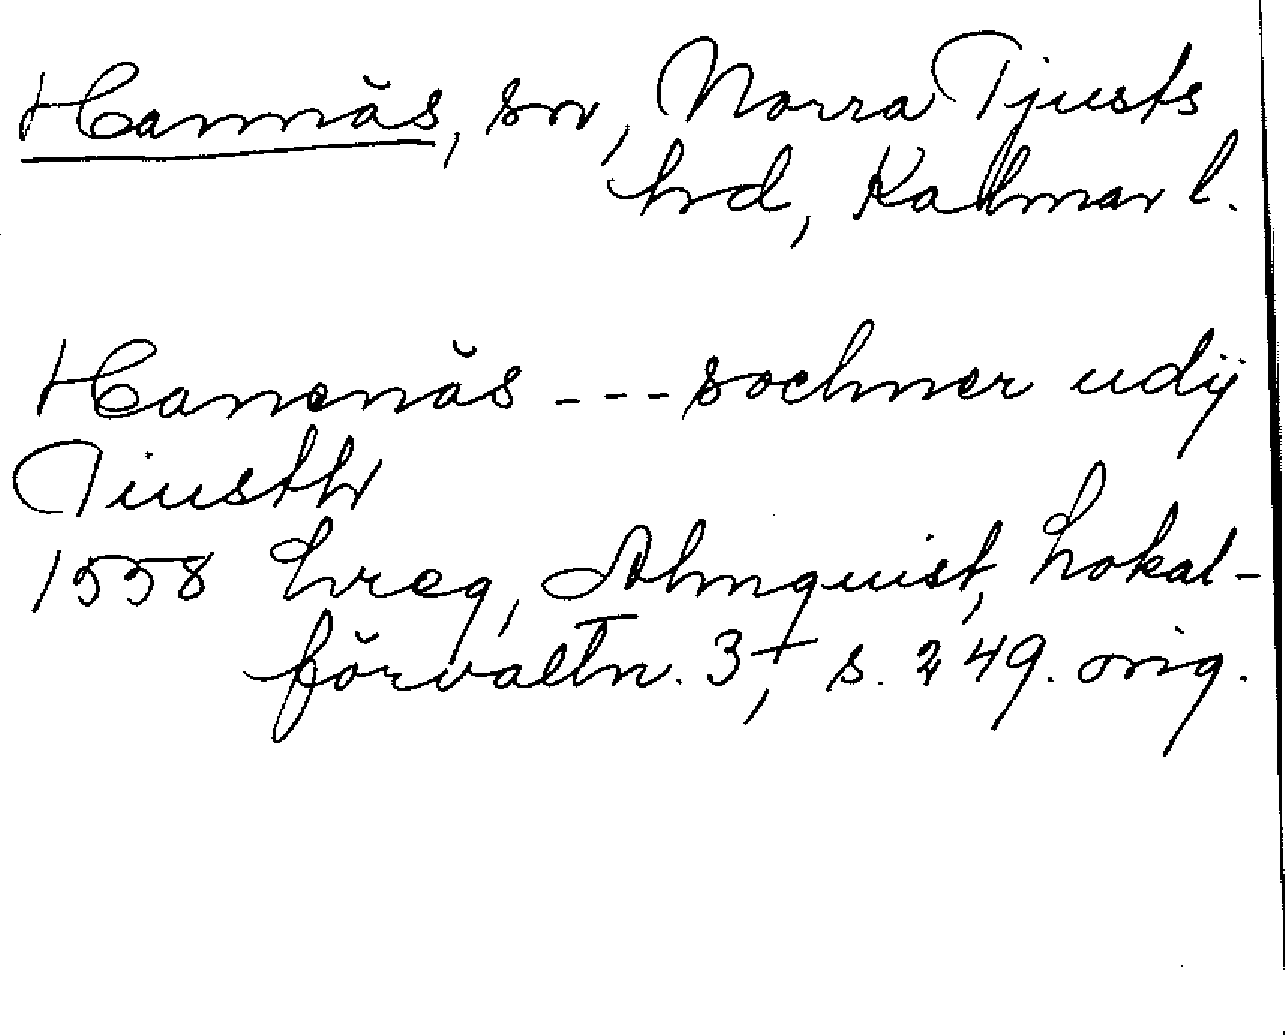 Hannäs, sn, Norra Tjusts
hd, Kalmar l.
Hanenäs --- sochner udij
Tiusth
1558 Lreg, Almquist, Lokal-
förvaltn. 3, s. 249. orig.